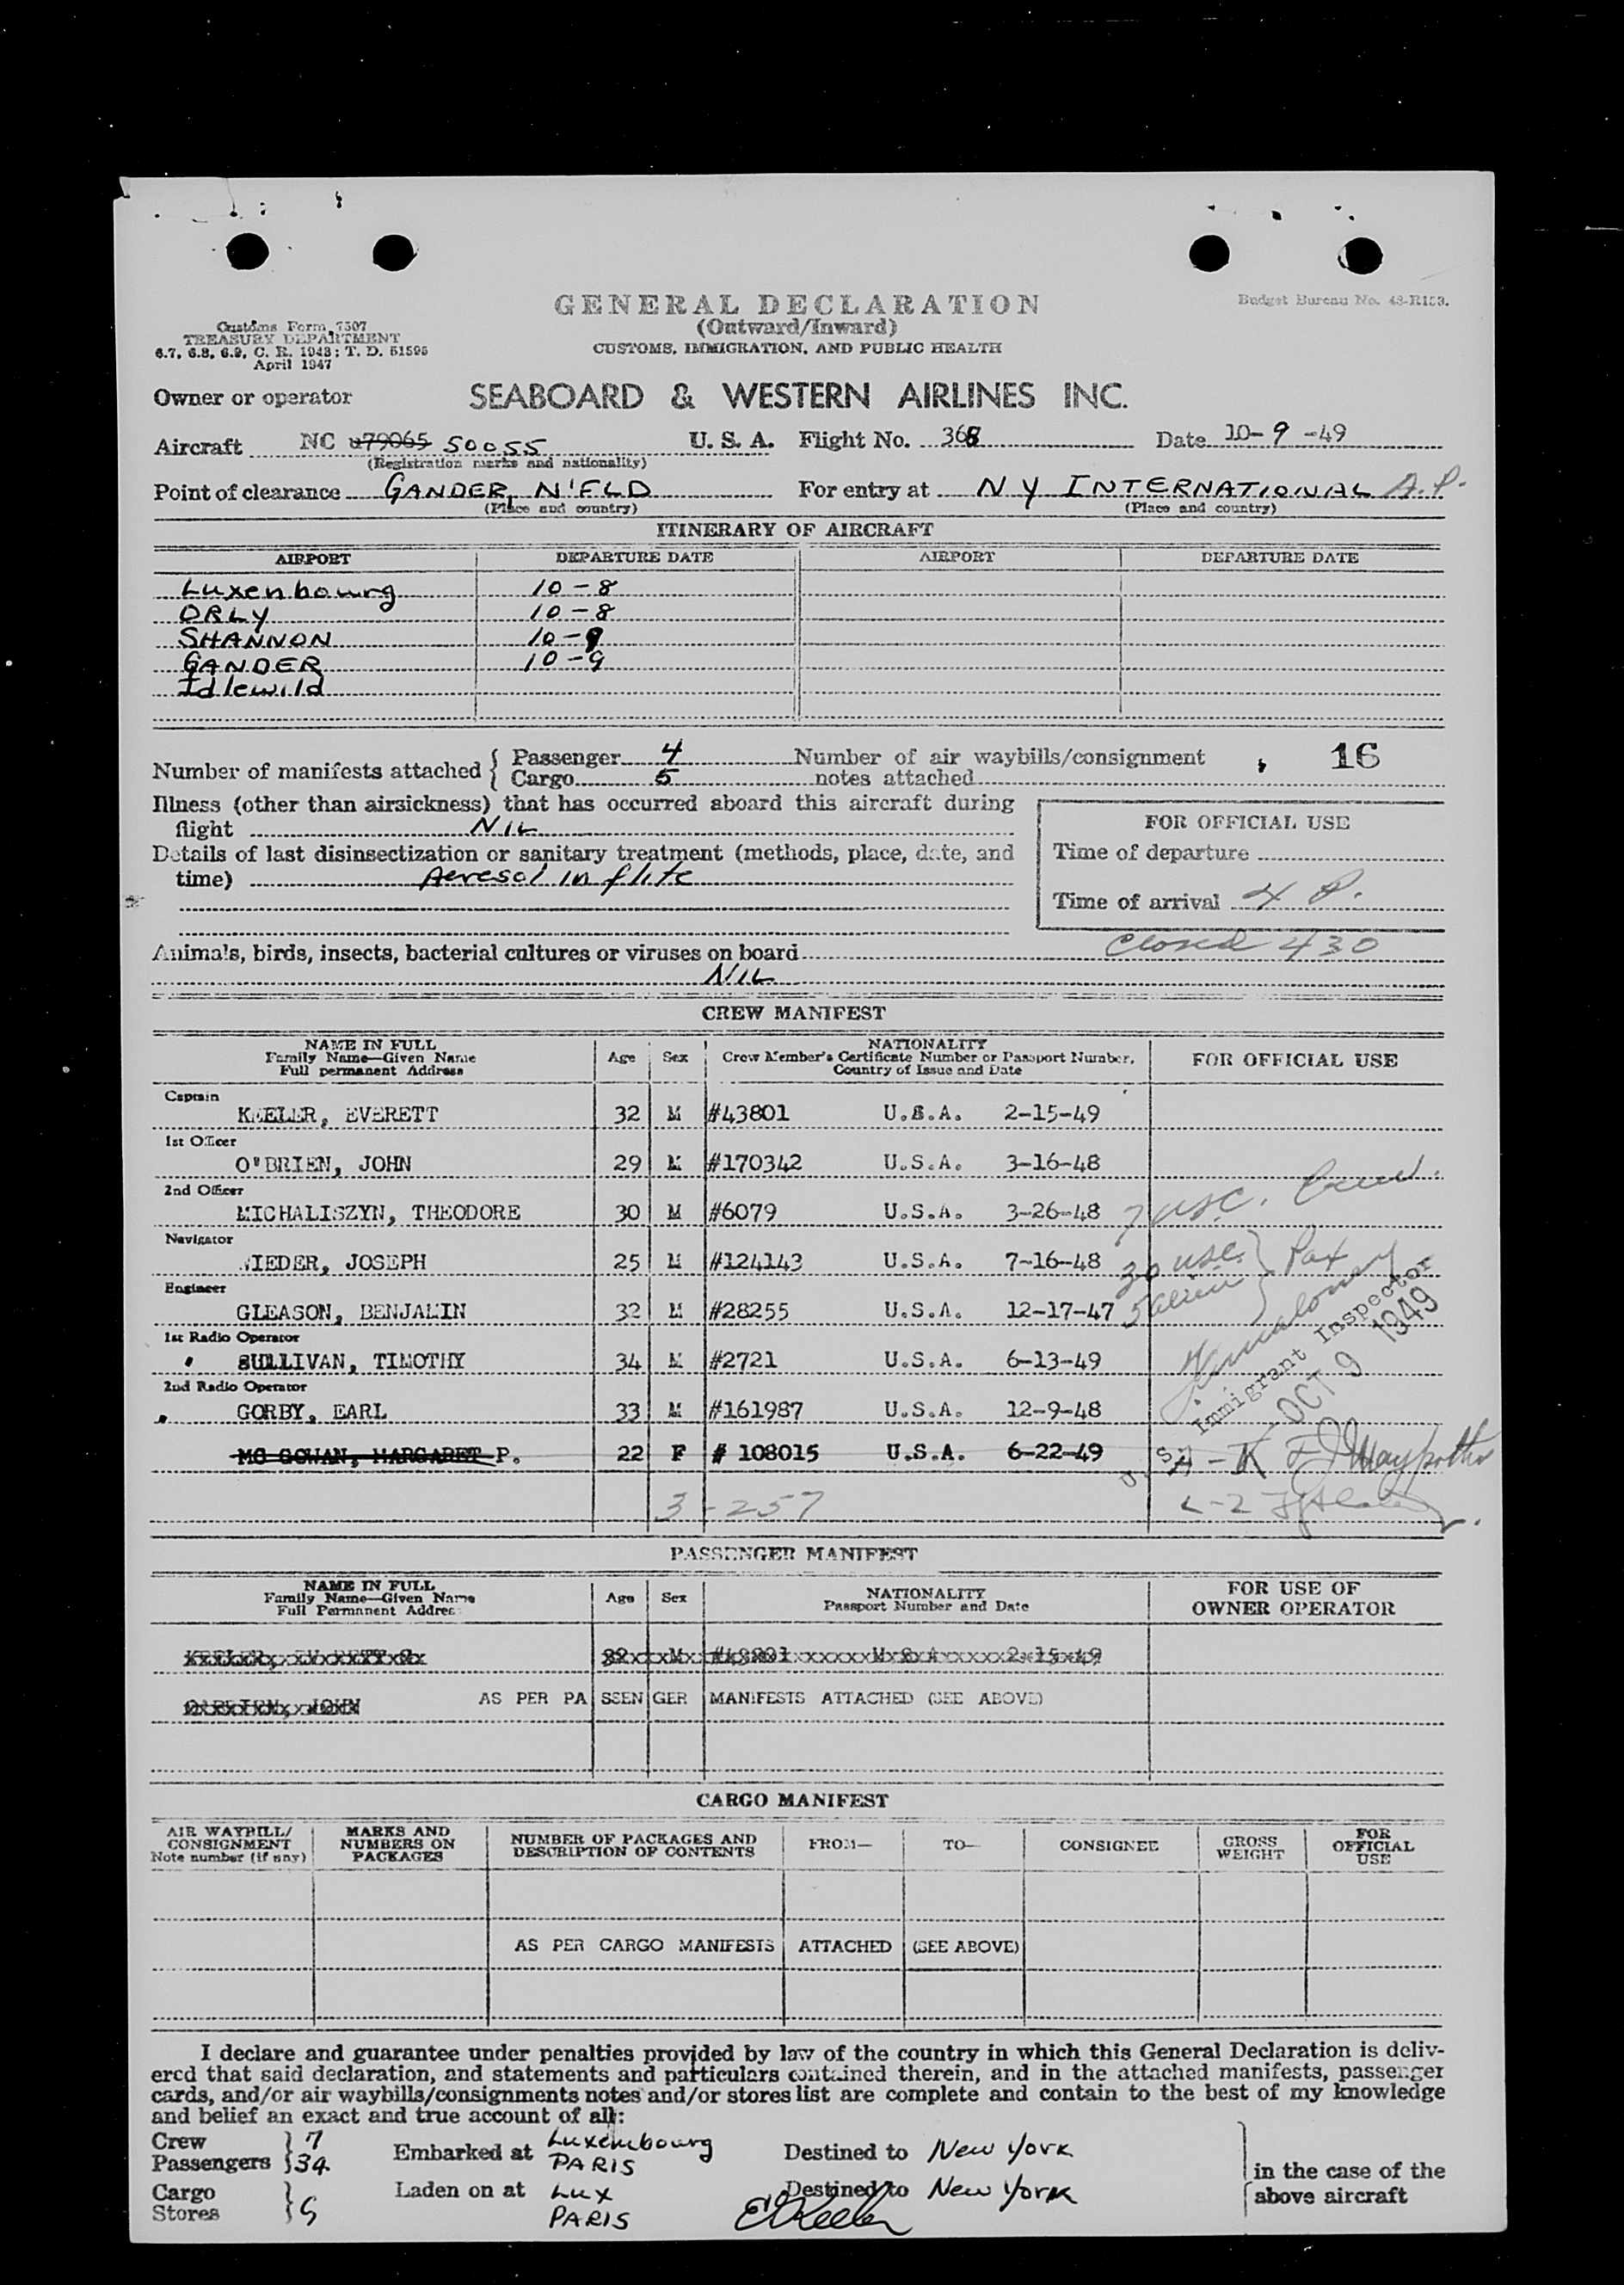 GENERAL DECLARATION
(Outward/Inward)
CUSTOMS, IMMIGRATION, AND PUBLIC HEALTH
Budget Bureau No. 48-R153.
Customs Form 7507
TREASURY DEPARTMENT
6.7, 6.8, 6.9, C. R. 1943; T. D. 51595
April 1947
Owner or operator SEABOARD & WESTERN AIRLINES INC.
Aircraft NC 79065 50055 U. S. A. Flight No. 368 Date 10-9-49
(Registration marks and nationality)
Point of clearance GANDER, N'FLD For entry at N Y INTERNATIONAL A.P.
(Place and country) (Place and country)
ITINERARY OF AIRCRAFT
AIRPORT DEPARTURE DATE AIRPORT DEPARTURE DATE
Luxenbourg 10-8
ORLY 10-8
SHANNON 10-9
GANDER 10-9
Idlewild
Number of manifests attached { Passenger 4 Number of air waybills/consignment 16
Cargo 5 notes attached
Illness (other than airsickness) that has occurred aboard this aircraft during
flight NIL
FOR OFFICIAL USE
Details of last disinsectization or sanitary treatment (methods, place, date, and
time) Aeresol in flite
Time of departure
Time of arrival 4 P.
Closed 430
Animals, birds, insects, bacterial cultures or viruses on board
NIL
CREW MANIFEST
NAME IN FULL
Family Name—Given Name
Full permanent Address
Age Sex
NATIONALITY
Crew Member's Certificate Number or Passport Number,
Country of Issue and Date
FOR OFFICIAL USE
Captain
KEELER, EVERETT 32 M #43801 U.S.A. 2-15-49
1st Officer
O'BRIEN, JOHN 29 M #170342 U.S.A. 3-16-48
2nd Officer
MICHALISZYN, THEODORE 30 M #6079 U.S.A. 3-26-48
7 USC.
Navigator
WIEDER, JOSEPH 25 M #124143 U.S.A. 7-16-48
30 USC } Pax
5 alien
Engineer
GLEASON, BENJAMIN 32 M #28255 U.S.A. 12-17-47
1st Radio Operator
SULLIVAN, TIMOTHY 34 M #2721 U.S.A. 6-13-49
2nd Radio Operator
GORBY, EARL 33 M #161987 U.S.A. 12-9-48
U. S. Immigrant Inspector
OCT 9 1949
MC GOWAN, MARGARET P. 22 F # 108015 U.S.A. 6-22-49
3-257
PASSENGER MANIFEST
NAME IN FULL
Family Name—Given Name
Full Permanent Address
Age Sex
NATIONALITY
Passport Number and Date
FOR USE OF
OWNER OPERATOR
AS PER PASSENGER MANIFESTS ATTACHED (SEE ABOVE)
CARGO MANIFEST
AIR WAYBILL/
CONSIGNMENT
Note number (if any)
MARKS AND
NUMBERS ON
PACKAGES
NUMBER OF PACKAGES AND
DESCRIPTION OF CONTENTS
FROM— TO— CONSIGNEE
GROSS
WEIGHT
FOR
OFFICIAL
USE
AS PER CARGO MANIFESTS ATTACHED (SEE ABOVE)
I declare and guarantee under penalties provided by law of the country in which this General Declaration is deliv-
ered that said declaration, and statements and particulars contained therein, and in the attached manifests, passenger
cards, and/or air waybills/consignments notes and/or stores list are complete and contain to the best of my knowledge
and belief an exact and true account of all:
Crew } 7 Embarked at Luxembourg Destined to New York
Passengers } 34 PARIS
in the case of the
Cargo } Laden on at Lux Destined to New York
above aircraft
Stores } PARIS
E Keeler